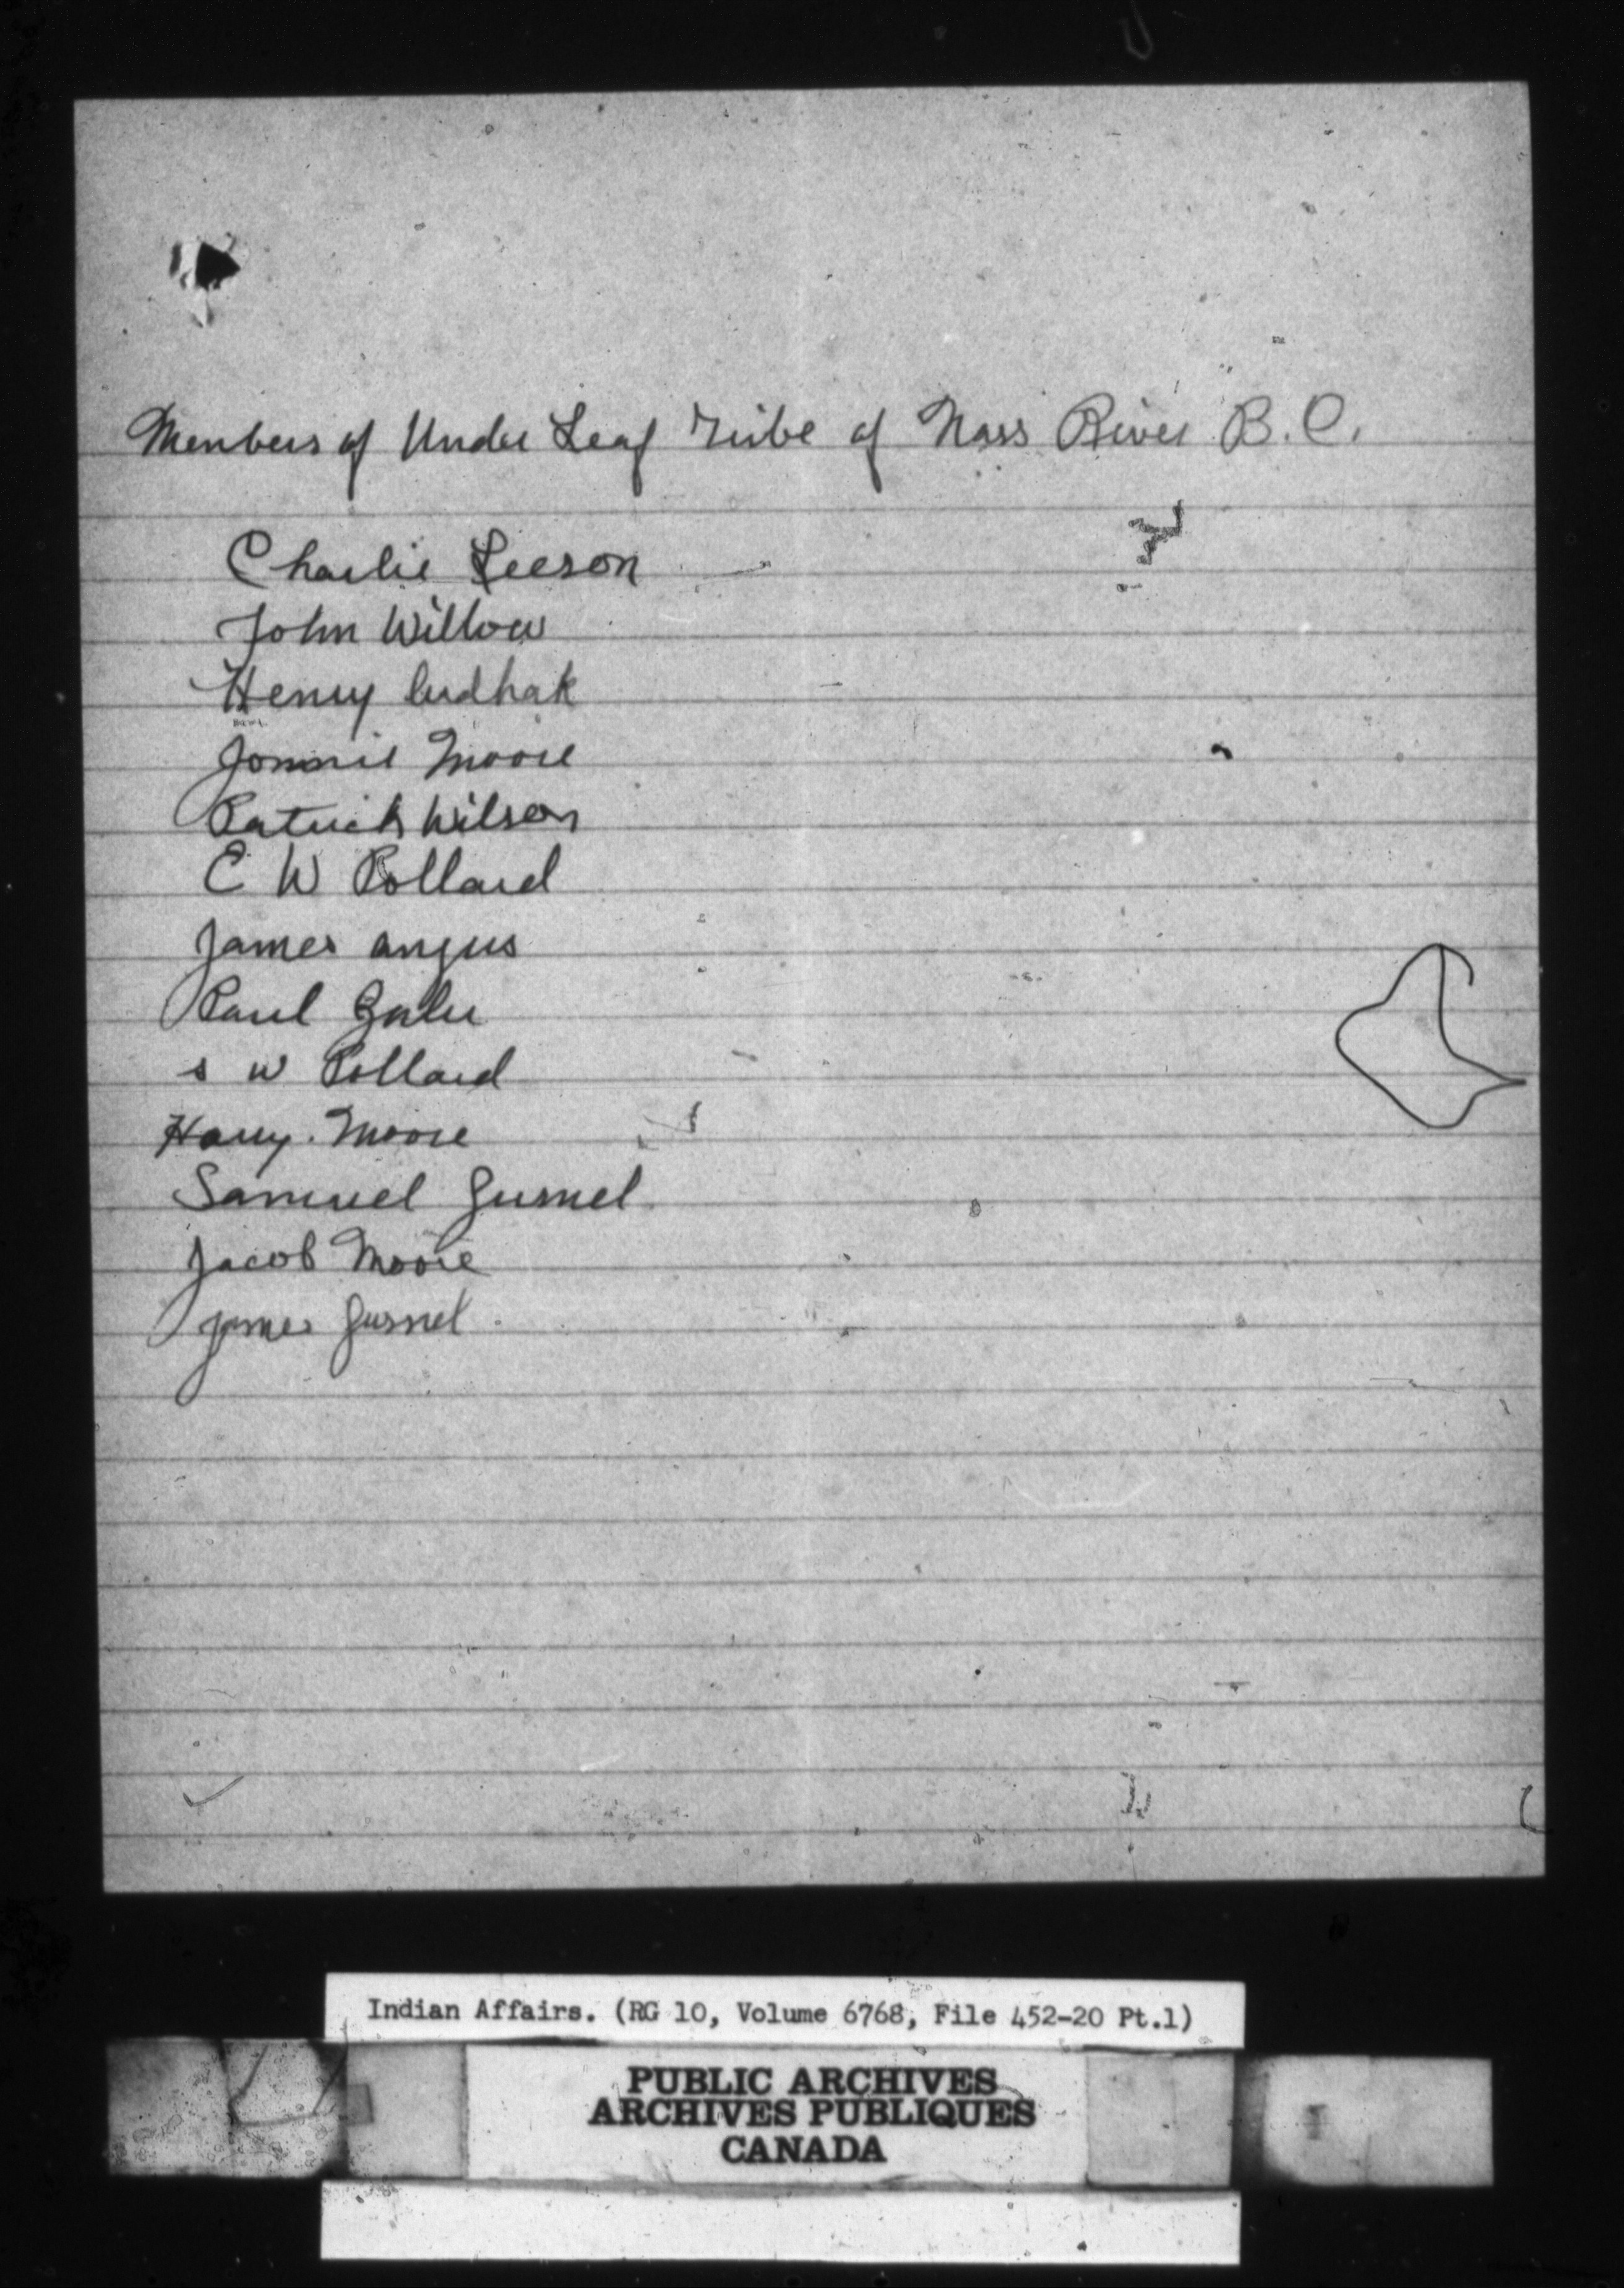 Members of Under Leaf Tribe of Nass River B.C.
Charlie Leeson
John Willow
Henry
Jonnie Moore
Patrick Wilson
C W Pollard
James angus
Paul
s w Pollard
Harry. Moore
Samuel Gurnel
Jacob Moore
James Gurnel
Indian Affairs. (RG 10, Volume 6768, File 452-20 Pt.1)
PUBLIC ARCHIVES
ARCHIVES PUBLIQUES
CANADA